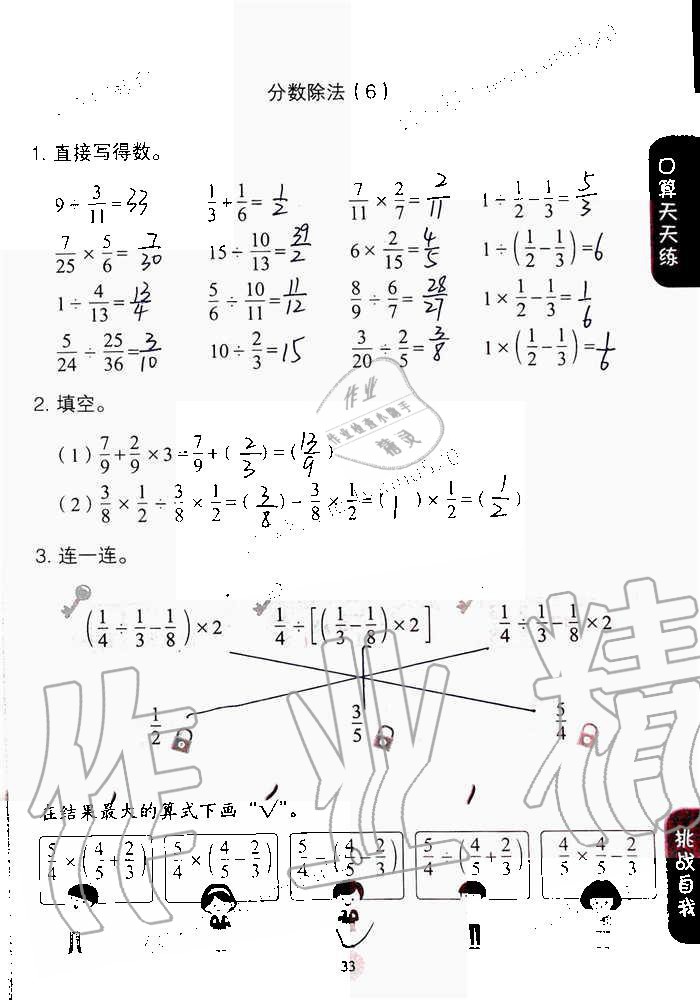 分数除法(6)
1. 直接写得数。
9÷3/11=33 1/3+1/6=1/2 7/11×2/7=2/11 1÷1/2-1/3=5/3
7/25×5/6=7/30 15÷10/13=39/2 6×2/15=4/5 1÷(1/2-1/3)=6
1÷4/13=13/4 5/6÷10/11=11/12 8/9÷6/7=28/27 1×1/2-1/3=1/6
5/24÷25/36=3/10 10÷2/3=15 3/20÷2/5=3/8 1×(1/2-1/3)=1/6
口算天天练
2. 填空。
(1) 7/9+2/9×3=7/9+(2/3)=(13/9)
(2) 3/8×1/2÷3/8×1/2=(3/8)÷3/8×1/2=(1)×1/2=(1/2)
3. 连一连。
(1/4÷1/3-1/8)×2 1/4÷[(1/3-1/8)×2] 1/4÷1/3-1/8×2
1/2 3/5 5/4
在结果最大的算式下画“√”。
5/4×(4/5+2/3) 5/4×(4/5-2/3) 5/4-(4/5-2/3) 5/4÷(4/5+2/3) 4/5×4/5-2/3
挑战自我
33
作业
作业检查小助手
精灵
作业精